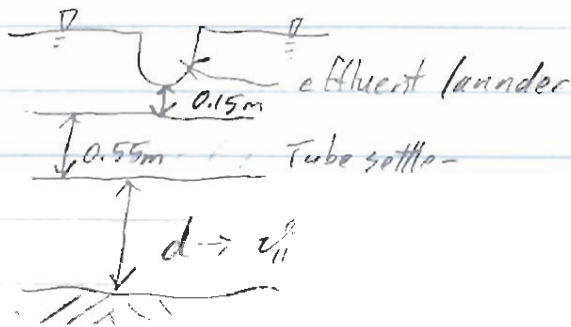 effluent launder
0.15m
0.55m Tube settler
d → v"